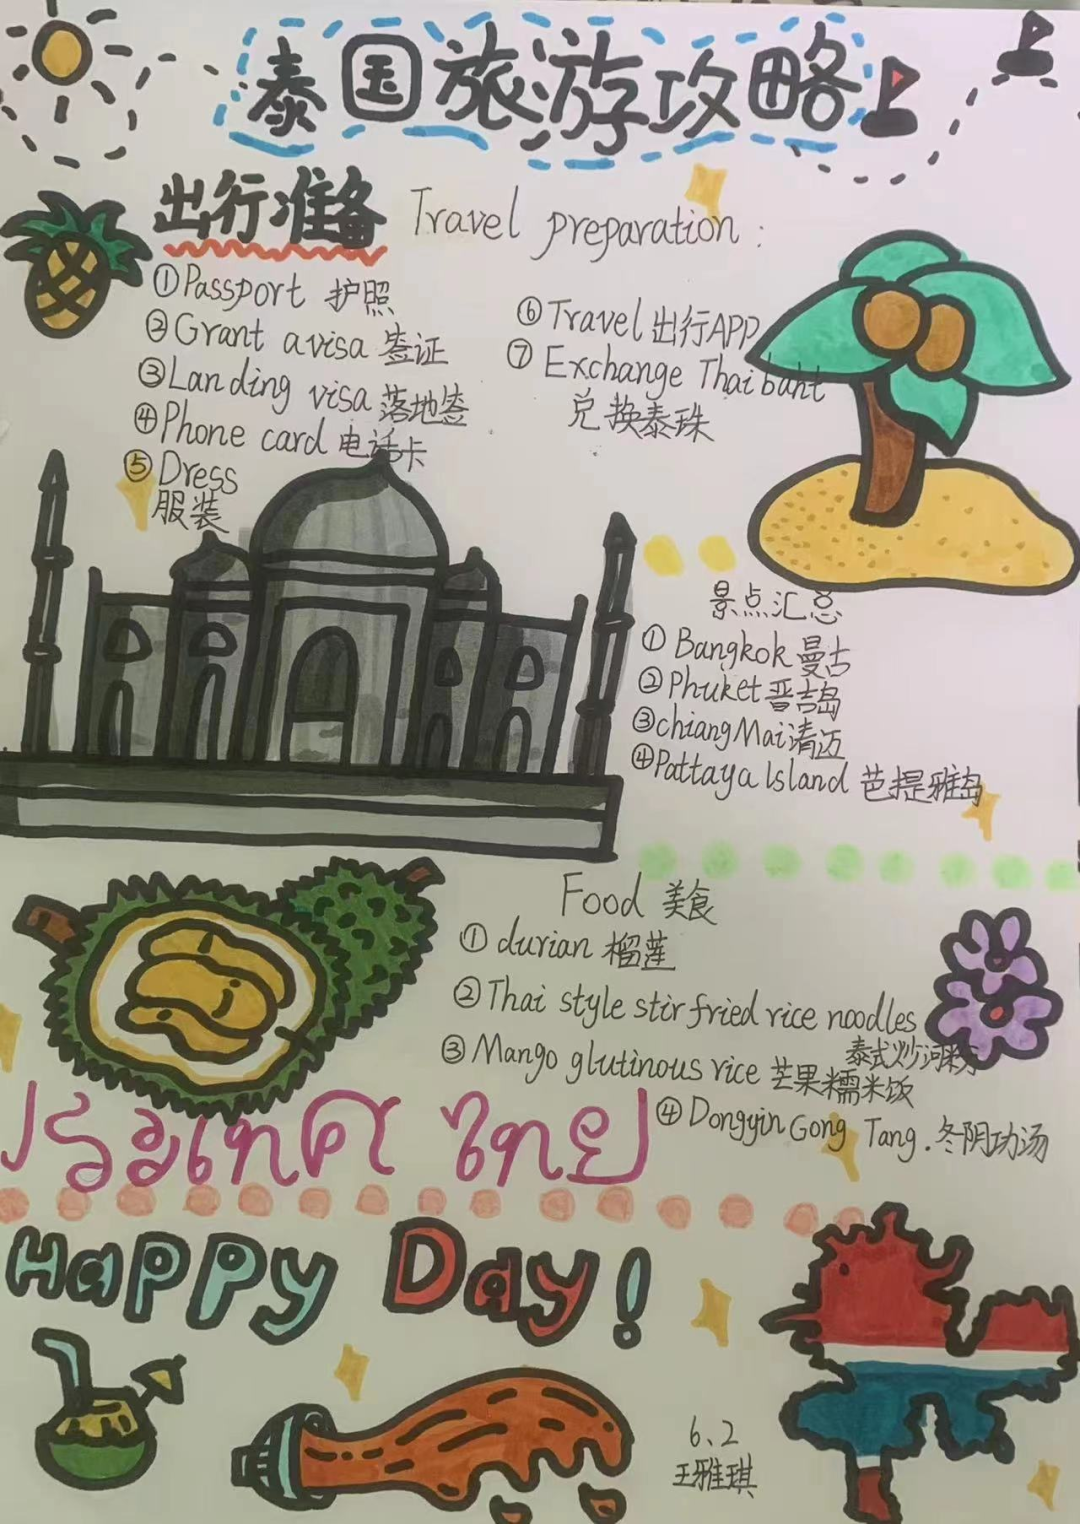 泰国旅游攻略
出行准备 Travel preparation:
①Passport 护照
②Grant a visa 签证
③Landing visa 落地签
④Phone card 电话卡
⑤Dress
服装
⑥Travel 出行APP
⑦Exchange Thai baht
兑换泰珠
景点汇总
①Bangkok 曼古
②Phuket 晋吉岛
③chiang Mai 清迈
④Pattaya Island 芭提雅岛
Food 美食
①durian 榴莲
②Thai style stir fried rice noodles
泰式炒河粉
③Mango glutinous rice 芒果糯米饭
④Dongyin Gong Tang.冬阴功汤
ประเทศ ไทย
Happy Day!
6、2
王雅琪